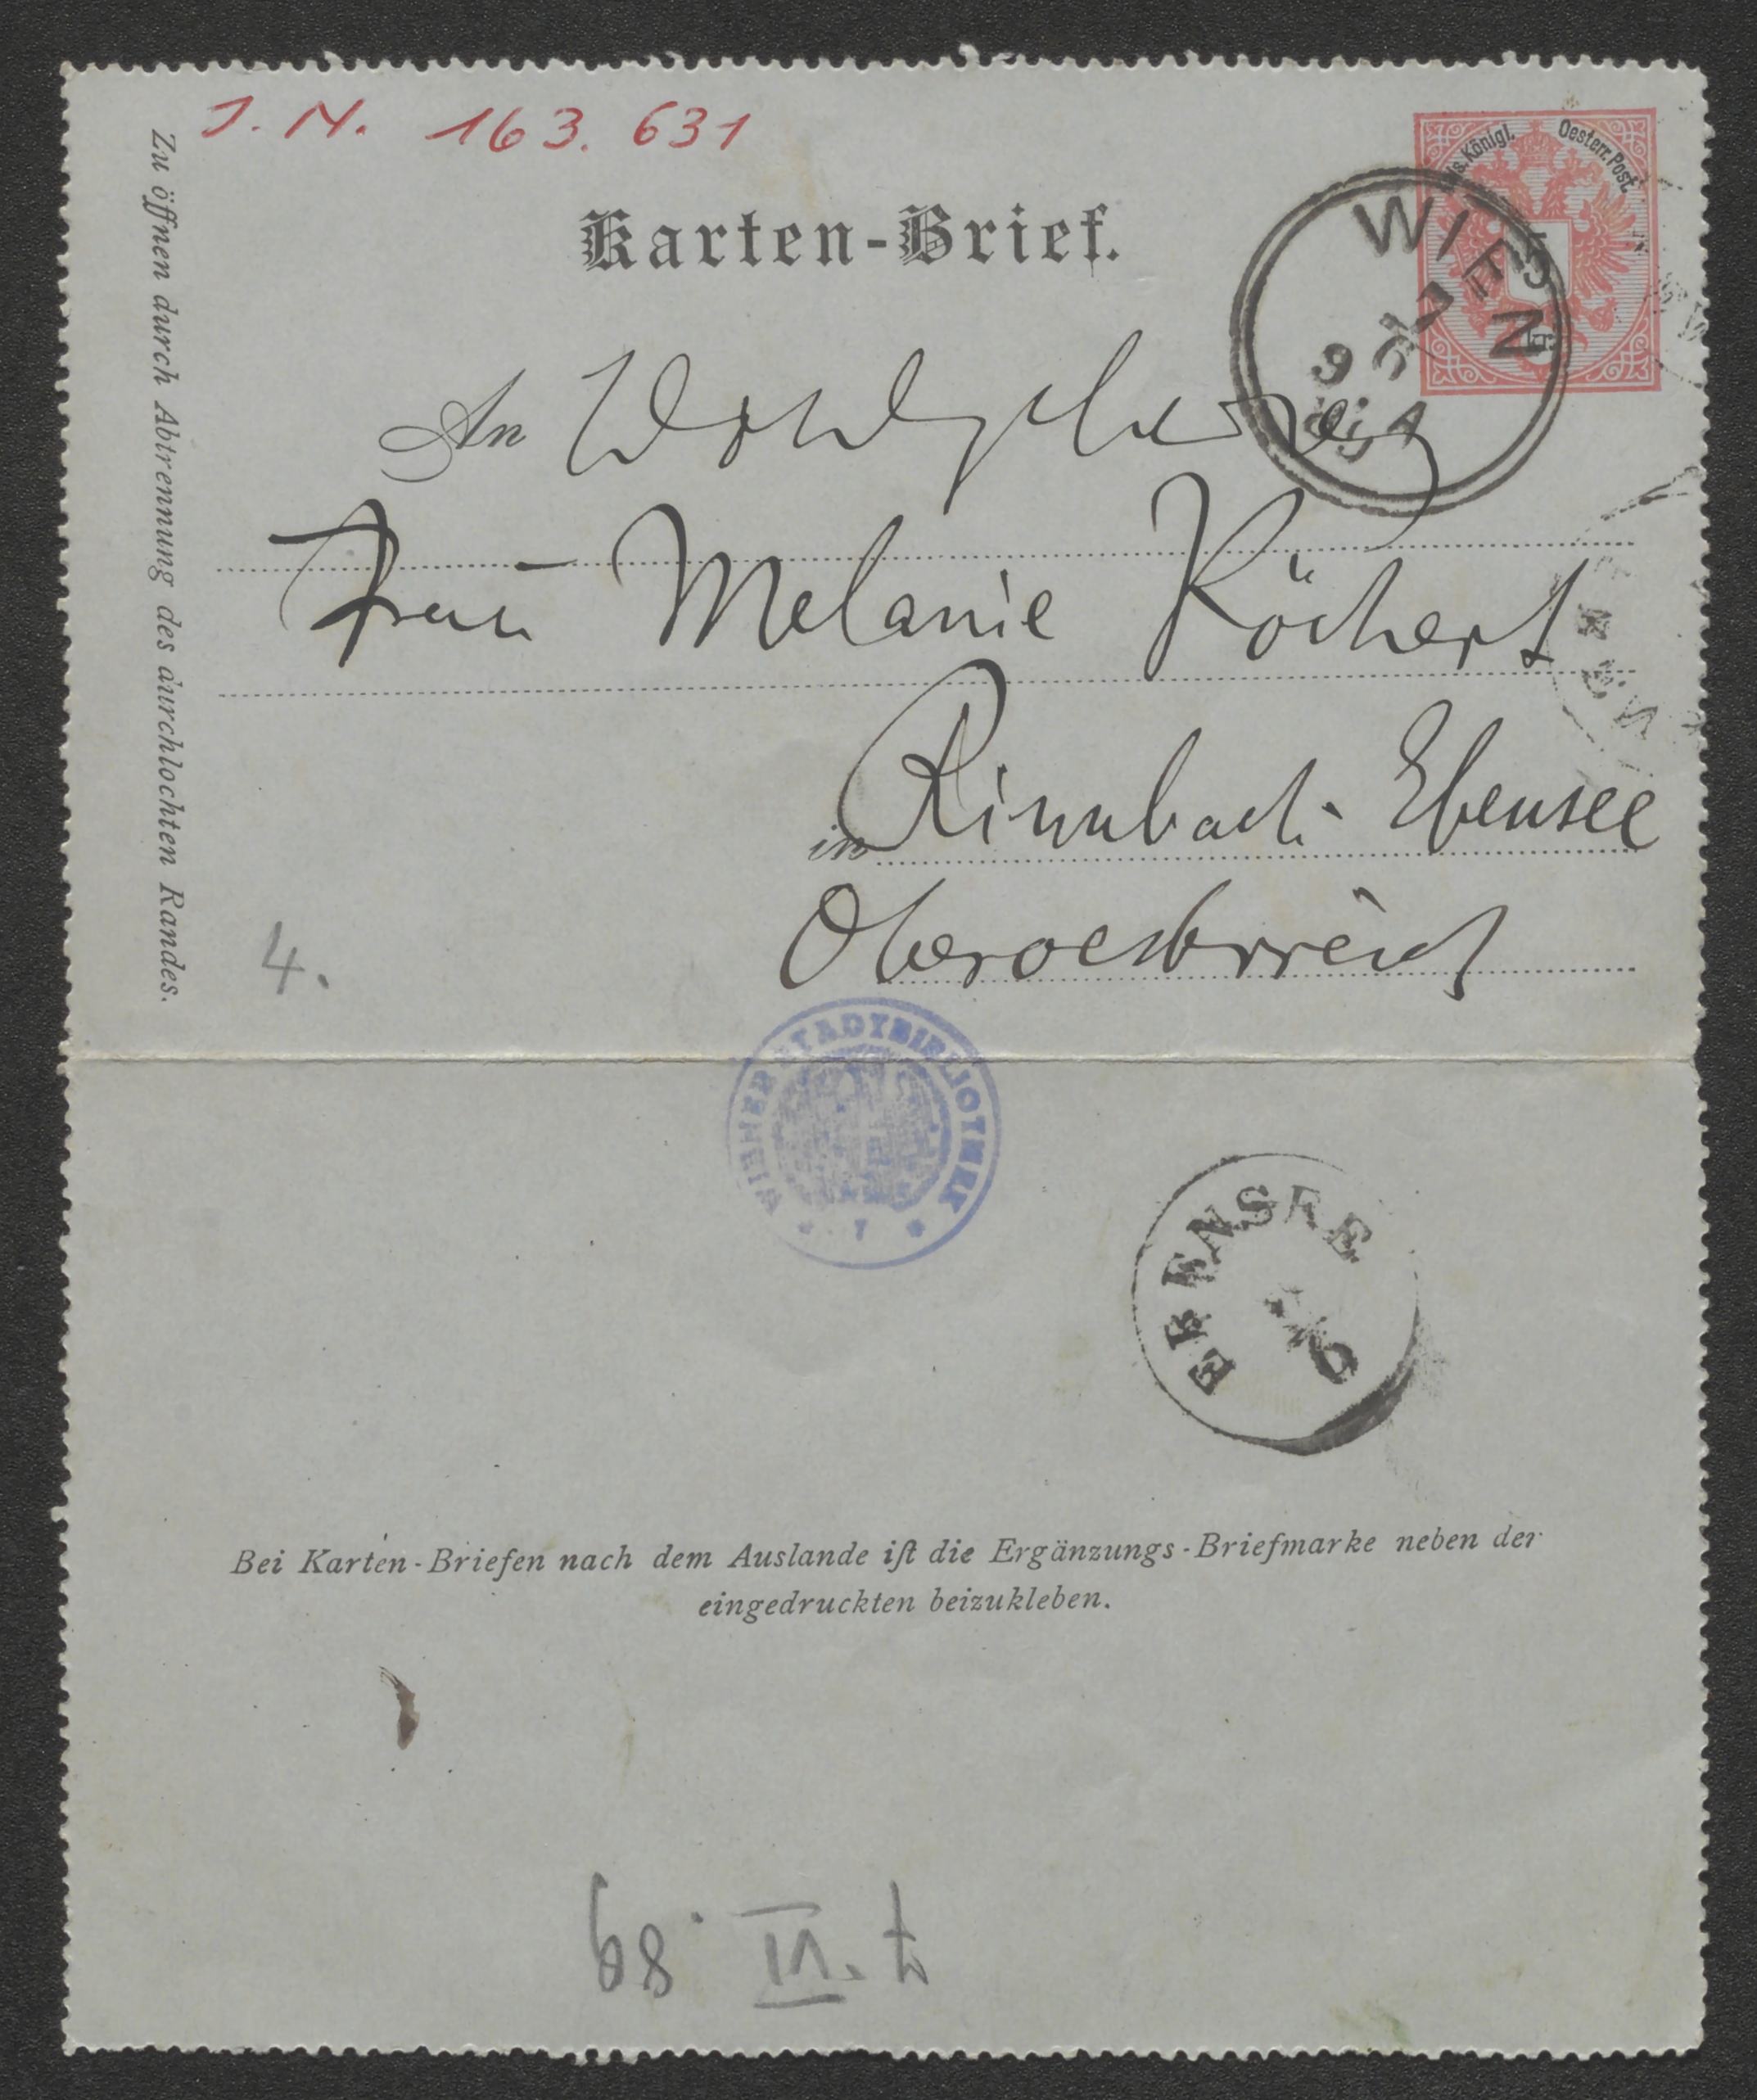 J. N. 163. 631
Kais. Königl. Oesterr. Post.
5
kr.
Zu öffnen durch Abtrennung des durchlochten Randes.
Karten-Brief.
WIEN
An Wohlgeboren
Frau Melanie Köchert
in Rinnbach-Ebensee
Oberoesterreich
4.
WIENER STADTBIBLIOTHEK
EBENSEE
Bei Karten-Briefen nach dem Auslande iſt die Ergänzungs-Briefmarke neben der
eingedruckten beizukleben.
7. VI. 89